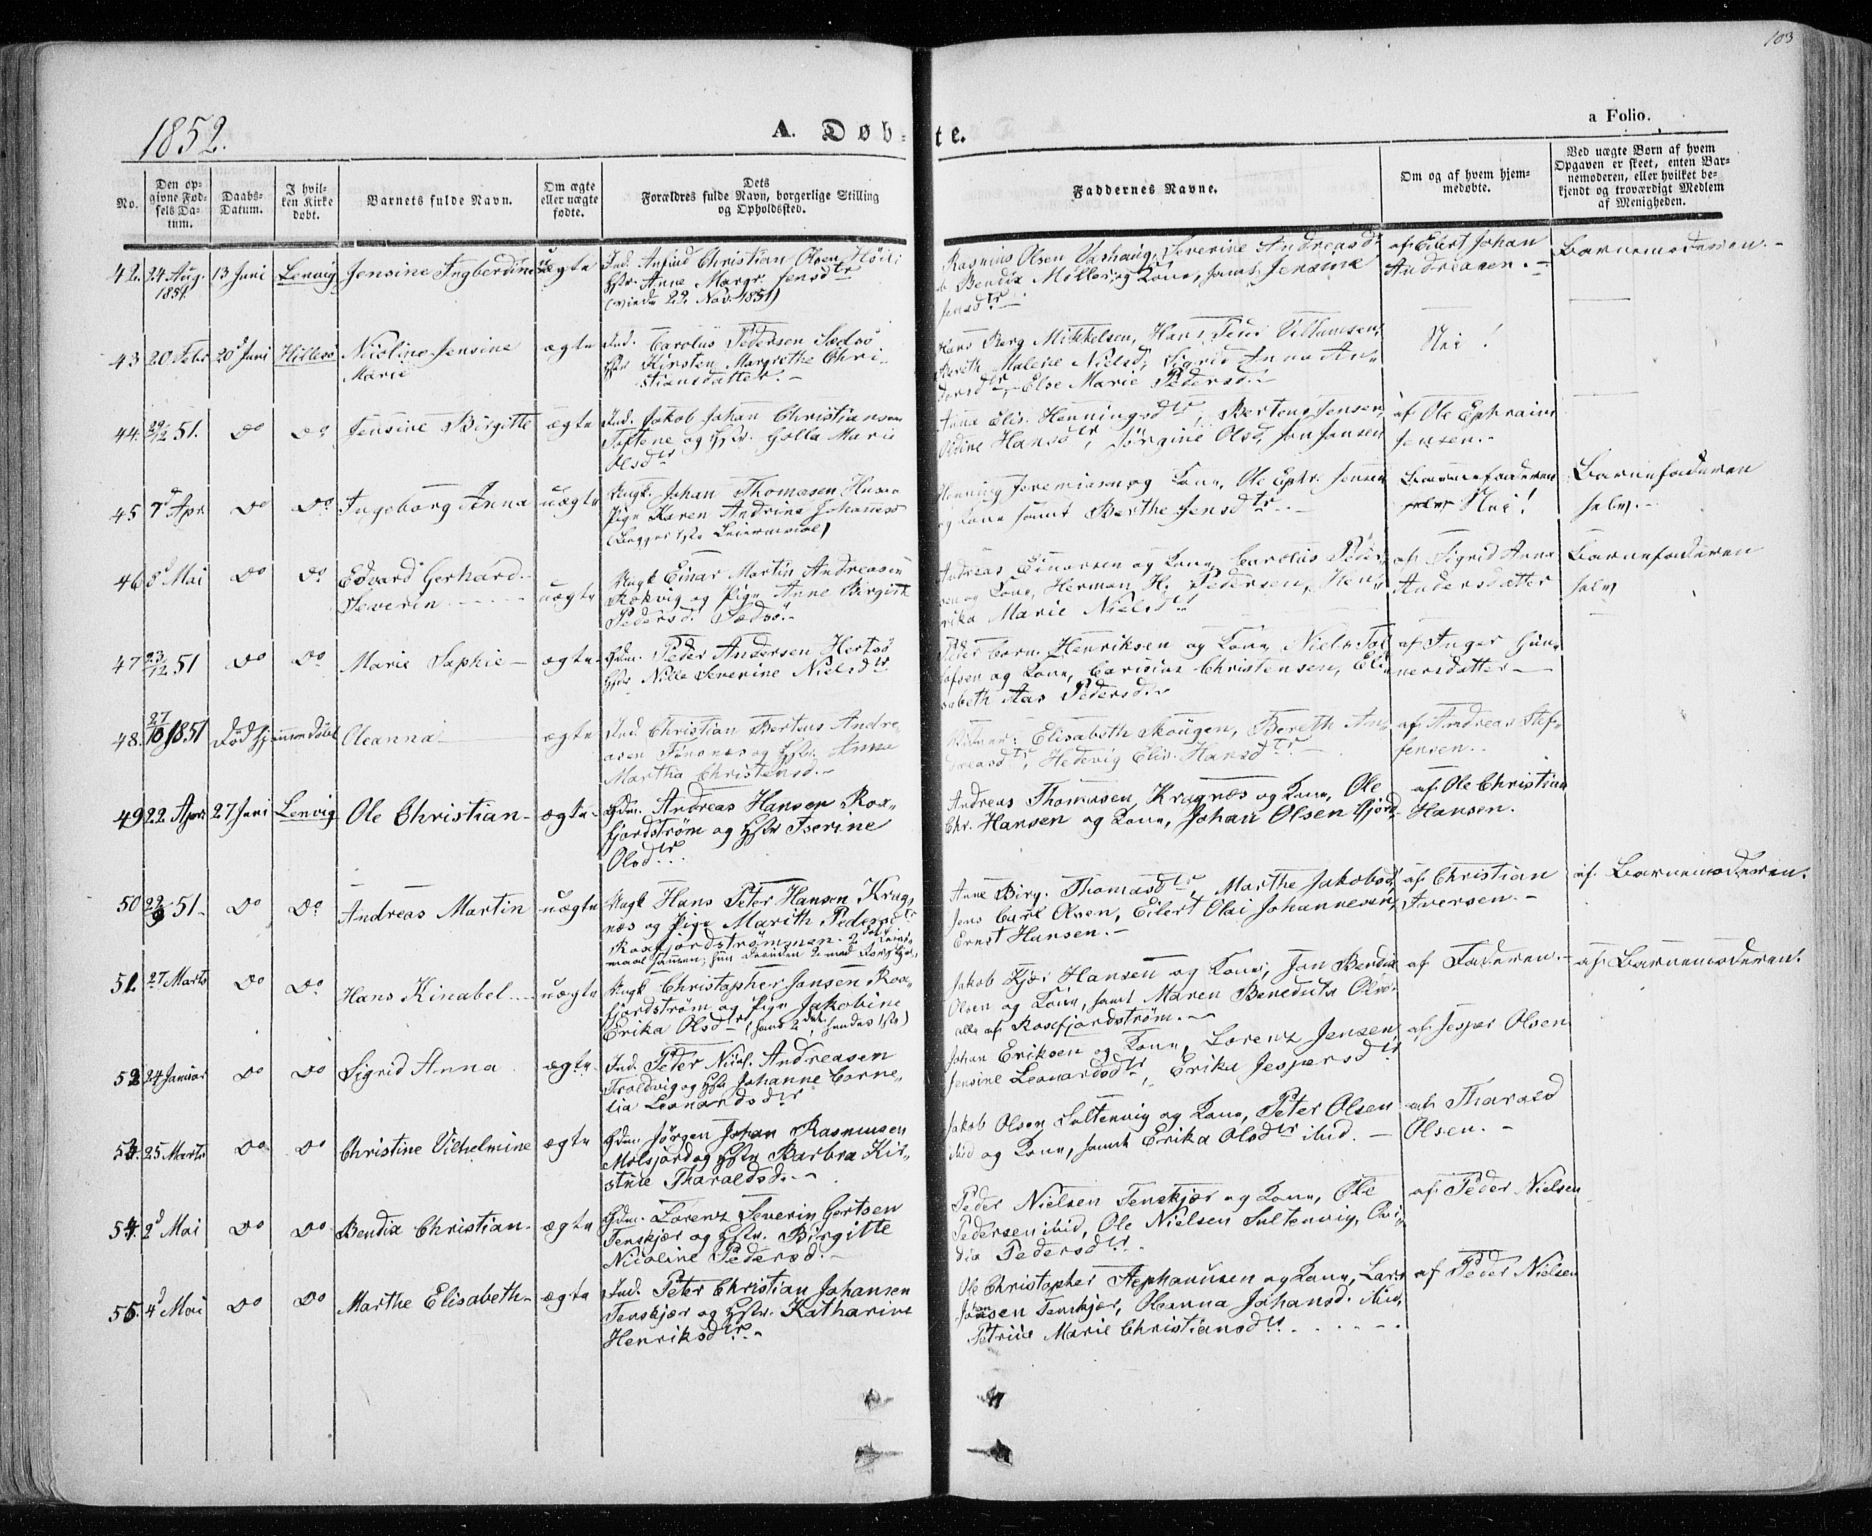 103
1852.
A. Døb-te.
a Folio.
No.
Den op-
givne Fød-
sels Da-
tum.
Daabs-
Datum.
I hvil-
ken Kirke
døbt.
Barnets fulde Navn.
Om ægte
eller uægte
fødte.
Dets
Forældres fulde Navn, borgerlige Stilling
og Opholdssted.
Faddernes Navne.
Om og af hvem hjem-
medøbte.
Ved uægte Børn af hvem
Opgaven er skeet, enten Bar-
nemoderen, eller hvilket be-
kjendt og troværdigt Medlem
af Menigheden.
42. 24 Aug. 1851. 13 Juni Lenvig Jensine Ingberdine uægte
Ind. Christian Olsen
Hstr. Anne Margr. Jensdtr
(viede 22. Nov. 1851)
Rasmus Olsen Severine Andreasdtr
Bendix Møller og Kone, samt Jensine
Jensdtr
af Eilert Johan
Andreasen.
Barnemoderen.
43 20 Febr 20d Juni Hillesø Nicoline Jensine
Marie
ægte
Ind. Carolus Pedersen Sædsø
Hstr Kirsten Margrethe Chri-
stiansdatter.
Hans Berg Mikkelsen, Hans Peder Villumsen,
Bereth Malene Nielsd, Sigrid Anna An-
dersdtr, Else Marie Pedersd.
Nei!
44. 29/12 51. Do Do Jensine Birgitte ægte
Ind. Jakob Johan Christiansen
Tiftene og Hstr. Golla Marie
Olsdtr
Anna Elis. Henningsdtr, Berteus Jensen,
Oldine Hansdtr, Jørgine Olsd, Jon Jensen
af Ole Ephraim
Jensen.
45 7d Apr Do Do Ingeborg Anna uægte
Ungk. Johan Thomasen
Pige Karen Andrine Johannsd
(Begges 1ste Leiermaal)
Henning Jeremiasen og Kone, Ole Ephr. Jensen
og Kone samt Berthe Jensdtr.
Barnefaderen
selv Nei!
Barnefaderen
selv.
46 8d Mai Do Do Edvard Gerhard
Severin
uægte
Ungk Einar Martin Andreasen
Rekvig og Pige Anne Birgith
Pedersd. Sædsø.
Andreas Einarsen og Kone, Carolus Peder-
sen og Kone, Herman H. Pedersen, Hen-
rika Marie Nielsdtr
af Sigrid Anna
Andersdatter
Barnefaderen
selv
47 23/12 51 Do Do Marie Sophie ægte
Gdm. Peder Andersen Hertsø
Hstr Nille Severine Nielsdtr
Peder Corn. Henriksen og Kone, Niels Tol-
lefsen og Kone, Carisius Christensen, Eli-
sabeth Aas Pedersdtr
af Inger Gun-
nersdatter
48. 27/10 1851 Død hjemmedøbt Oleanna ægte
Ind Christian Berteus Andre-
asen og Hstr. Anne
Martha Christensd.
Elisabeth Skougen, Bereth An-
dreasdtr, Hedevig Elis. Hansdtr
af Andreas Stef-
fensen.
49 22 April 27 Juni Lenvig Ole Christian ægte
Gdm. Andreas Hansen Ros-
fjordstrøm og Hstr Iserine
Olsdtr.
Andreas Thomasen, Kragnes og Kone, Ole
Chr. Hansen og Kone, Johan Olsen Gjerd
af Ole Christian
Hansen.
50 22/9 51 Do Do Andreas Martin uægte
Ungk Hans Peter Hansen Krag-
næs og Pige Marith Pedersdtr
Rosfjordstrømmen.
Anne Birg. Thomasdtr, Marthe Jakobsd,
Jens Carl Olsen, Eilert Olai Johannesen,
Ernst Hansen.
af Christian
Iversen.
af Barnemoderen.
51. 27 Marts Do Do Hans Kinabel uægte
Ungk Christopher Jensen Ros-
fjordstrøm og Pige Jakobine
Erika Olsdtr (hans 2det, hendes 1ste)
Jakob Kjær Hansen og Kone, Jon Bendix
Olsen og Kone, samt Maren Benedikte Olsd.
alle af Rosefjordstrøm.
af Faderen.
af Barnemoderen.
52 24 Januar Do Do Sigrid Anna ægte
Ind. Peter Nicol. Andreasen
Troldvig og Hstr Johanne Corne-
lia Leonardsdtr
Johan Eriksen og Kone, Lorenz Jensen,
Jensine Leonardsdtr, Erika Jespersdtr
af Jesper Olsen
53. 25 Marts Do Do Christine Vilhelmine ægte
Gdm. Jørgen Johan Rasmusen
Målsjord og Hstr Barbra Kir-
stine Tharaldsd.
Jakob Olsen Sultenvig og Kone, Peter Olsen
ibid og Kone, samt Erika Olsdtr ibid.
af Tharald
Olsen.
54. 2d Mai Do Do Bendix Christian ægte
Gdm. Lorenz Severin Gertsen
Tenskjær og Hstr. Birgitte
Nicoline Pedersd.
Peder Nielsen Tenskjær og Kone, Ole
Pedersen ibid, Ole Nielsen Sultenvig, Ovi-
dia Pedersdtr.
af Peder Nielsen
55. 4d Mai Do Do Marthe Elisabeth ægte
Ind. Peter Christian Johansen
Tenskjær og Hstr. Katharine
Henriksdtr.
Ole Christopher Stephanusen og Kone, Lars
Johansen Tenskjær, Oleanna Johansd. ibid,
Petrine Marie Christiansdtr.
af Peder Nielsen